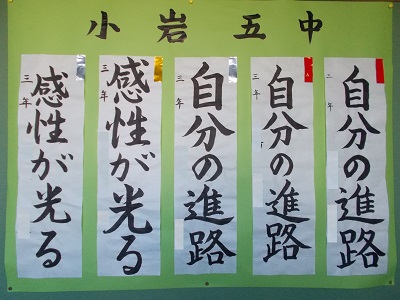 小岩五中
自分の進路
二年
自分の進路
三年
自分の進路
三年
感性が光る
三年
感性が光る
三年